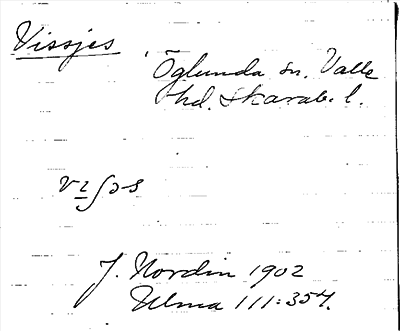 Vissjes
Öglunda sn. Valle
hd. Skarab. l.
vɪʃəs
J. Nordin 1902
Ulma 111:354.